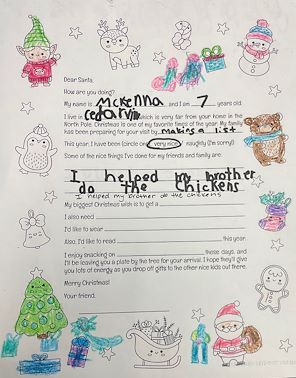 Dear Santa,
How are you doing?
My name is McKenna and I am 7 years old.
I live in Cedarville which is very far from your home in the
North Pole. Christmas is one of my favorite times of the year. My family
has been preparing for your visit by making a list
This year, I have been (circle one) very nice / naughty (I'm sorry!)
Some of the nice things I've done for my friends and family are:
I helped my brother
do the Chickens
I helped my brother do the chickens
My biggest Christmas wish is to get a
I also need
I'd like to wear
Also, I'd like to read this year.
I enjoy snacking on these days, and
I'll be leaving you a plate by the tree for your arrival. I hope they'll give
you lots of energy as you drop off gifts to the other nice kids out there.
Merry Christmas!
Your friend,